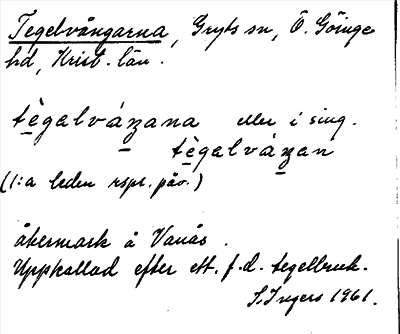 Tegelvångarna, Gryts sn, Ö. Göinge
hd, Krist. län.
tègalváŋana eller i sing.
tègalváŋan
(1:a leden rspr. påv.)
åkermark å Vanås.
Uppkallad efter ett f.d. tegelbruk.
S. Ingers 1961.